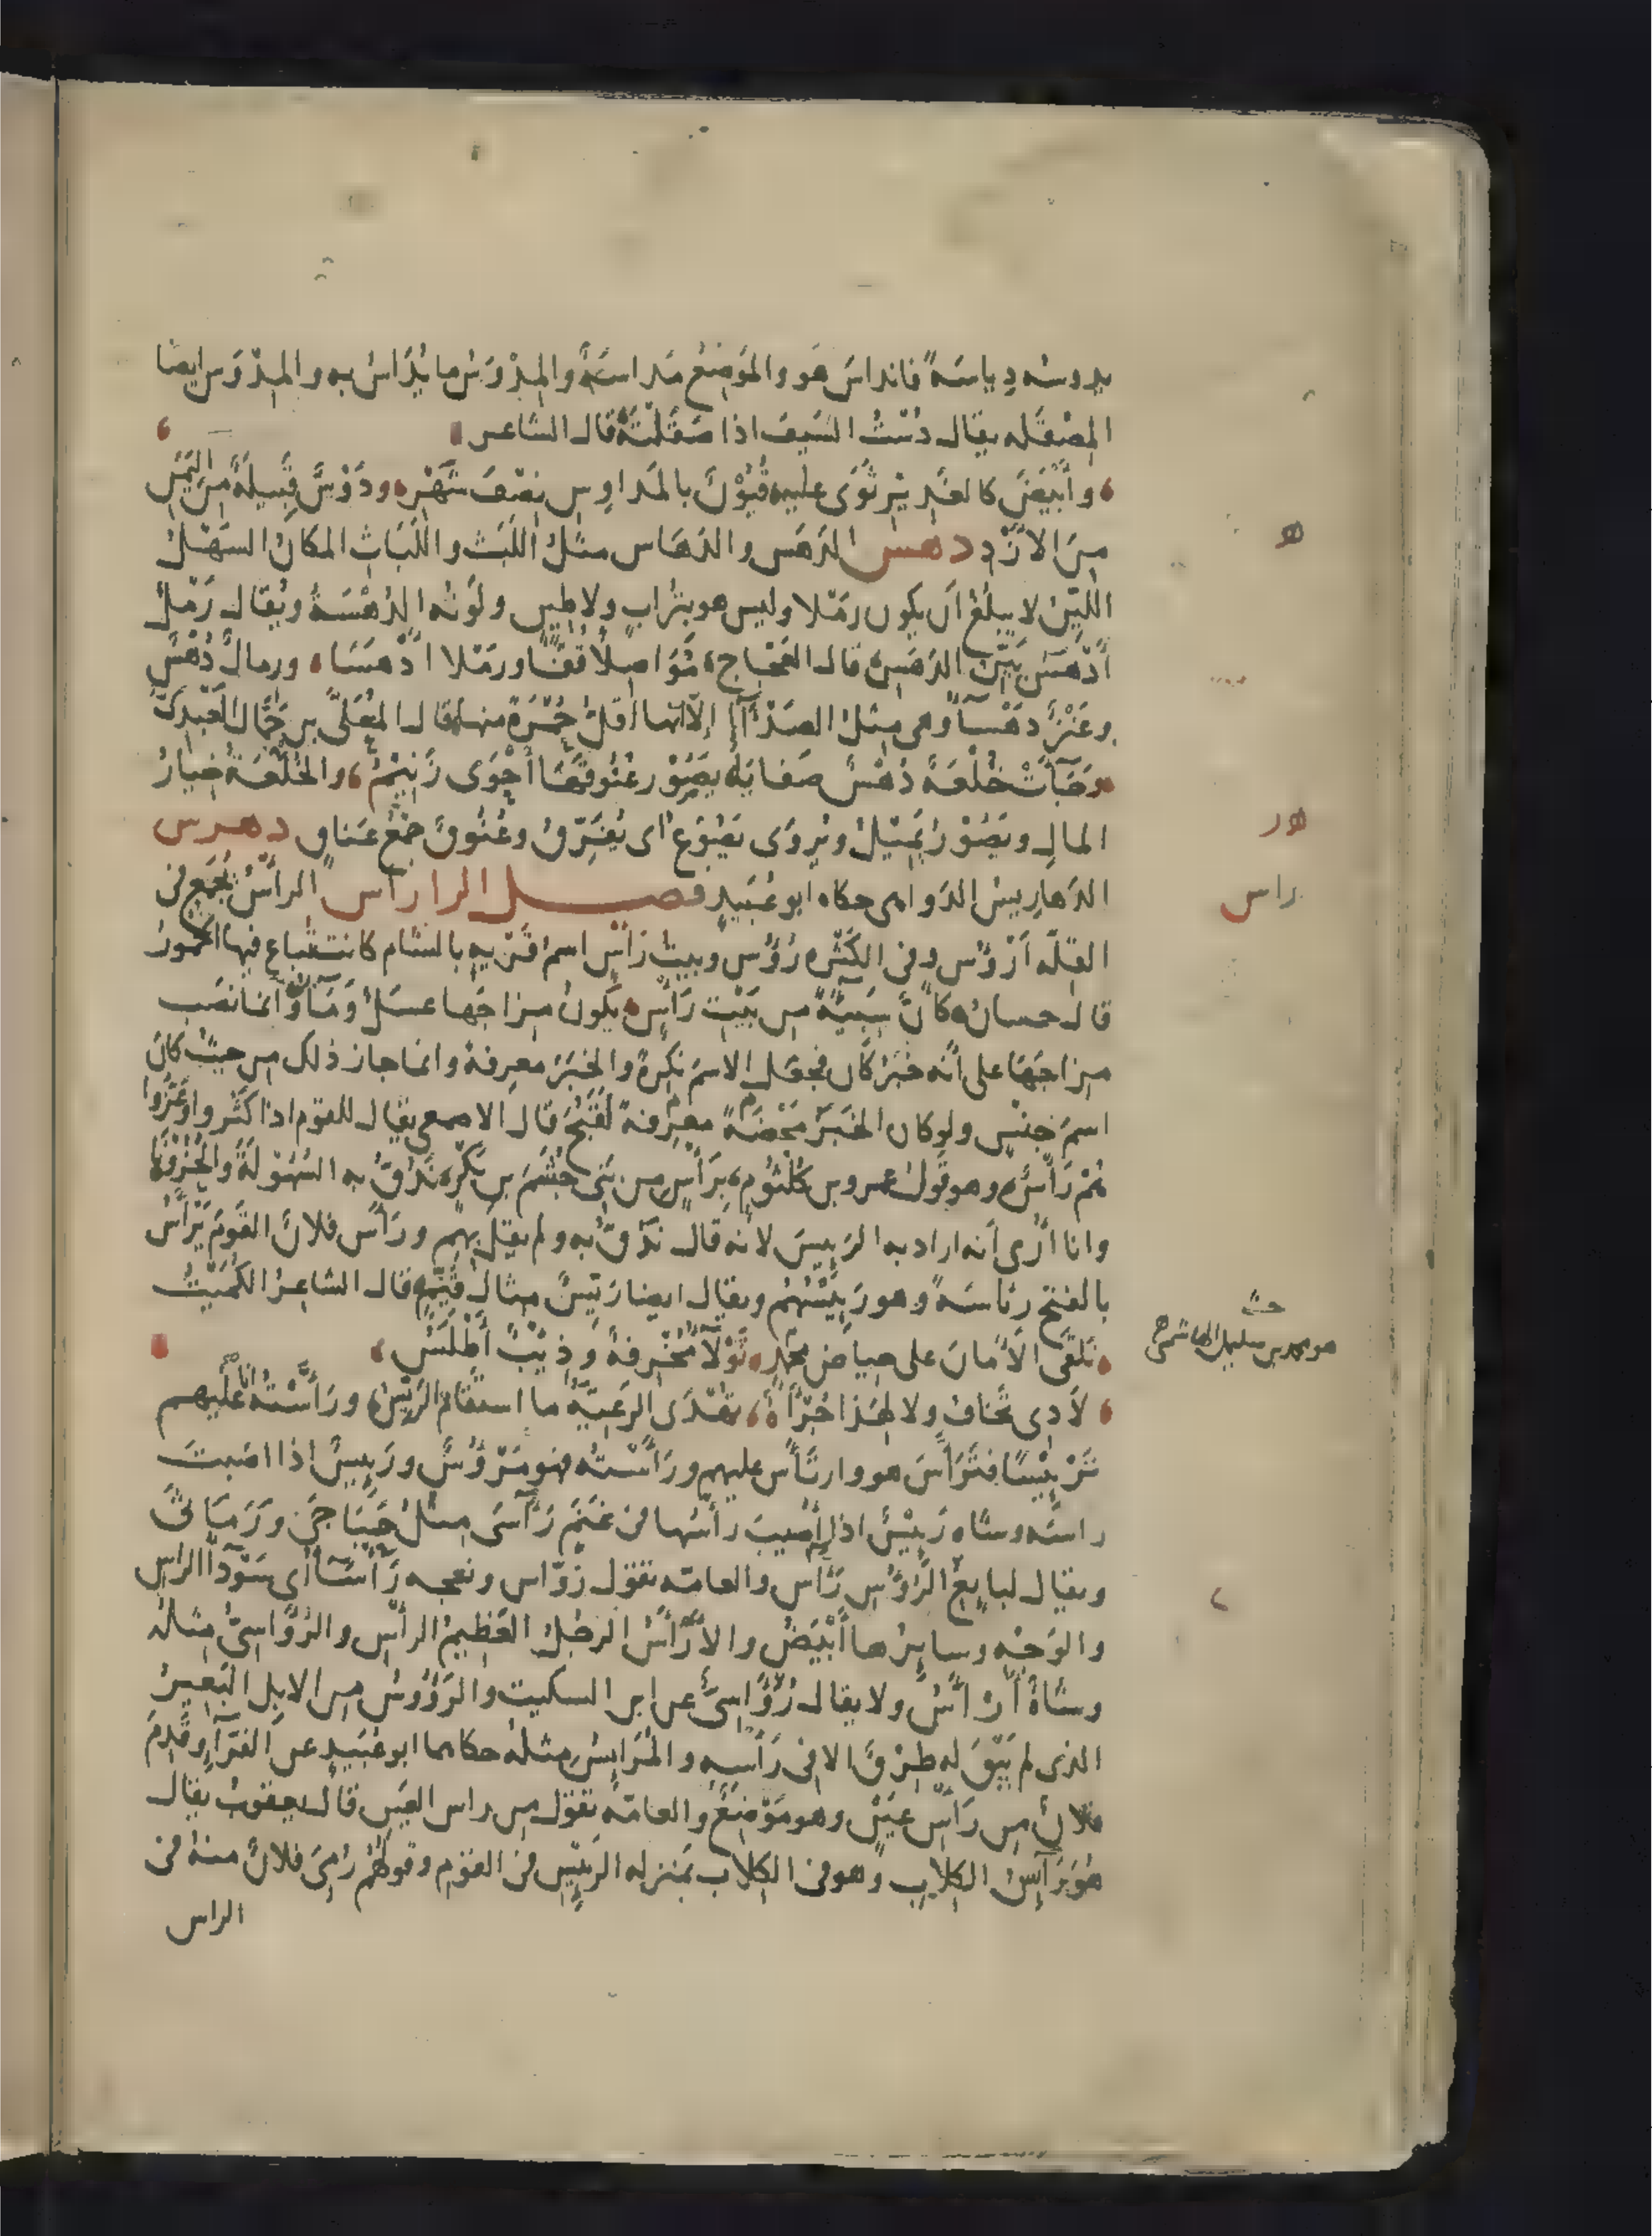 يدوسه دِياسَةً فانداسَ هو والمَوضِعُ مَداسَةٌ والمِدْوَسُ ما يُدَاسُ به والمِدْوَس ايضا
المِصْقَله يقال دُسْتُ السَيفَ اذا صَقَلتَهُ قال الشاعر
وأَبْيَضَ كالغَدِيرِ ثَوَى عليه قُيُوْنٌ بالمَداوِسِ نِصْفَ شَهْرِ ودَوْسٌ قَبيلَةٌ مِنَ اليَمَنِ
مِنَ الأزْدِ دهس الدَهَس والدَهَاس مثلُ اللَبَث واللَبَاثِ المكانُ السَهْلُ
اللَيِّنُ لا يبلُغُ اَن يكون رمْلا وليس هو بتُرابٍ ولا طِينٍ ولَوْنُه الدُهْسَةُ ويُقال رَمْلٌ
أَدْهَسُ بَيِّنُ الدَهَسِ قال العَجّاج مُوَاصِلاً قُفًّا ورَمْلا أَدْهَسَا ورمالٌ دُهْسٌ
وعَنْزٌ دهْسآءُ وهى مِثلُ الصَدْآءِ إلّا انها أقلُّ حُمْرَةً منها قال المُعَلَّى بن جَمَّال العَبْدىّ
وجَآءَتْ خُلْعَةً دُهْسٌ صَفَايَا يَصُوْرُ عُنُوقَهَا أَحْوَى زَنِيْمُ والخُلْعَةُ خِيارُ
المالِ ويَصُوْرُ يُمِيْلُ ويُروَى يَصُوْعُ اى يُفَرِّقُ وعُنُوقٌ جَمْعُ عَناقٍ دهرس
الدَهاريسُ الدَواهى حكاه ابو عُبَيدٍ فصل الرا راس الرأسُ يُجمَع فى
القلّه أَرْؤُس وفى الكَثْره رُؤُس وبيتُ رَأْسٍ اسمُ قَرْيه بالشام كانت تُباع فيها الخمورُ
قال حسانُ كاَنَّ سَبِيّةً من بَيْتِ رَأسٍ يكونُ مِزاجَها عسَلٌ ومَآءُ وانما نصَبَ
مِزاجَهَا على انّه خبَرُ كان فجعَل الاسمَ نكِرةً والخبَرَ معرفةً وانما جاز ذلك من حيثُ كانَ
اسمَ جِنسٍ ولو كان الخَبَرُ مَحْضَةً معرِفةً لقَبُحَ قال الاصمعى يقال للقوم اذا كَثُروا وعَزُّوا
هُمْ رَأسٌ وهو قولُ عمرو بن كُلثُومٍ برَأْسٍ من بَنِى جُشَمَ بنِ بَكْرٍ نَدُقُّ به السُهُوْلَةَ والحُزُوْنَا
وانا اُرَى أنه اراد به الرَئيسَ لانه قال نَدُقُّ به ولم يقل بهم ورَأَسَ فلانٌ القَومَ يَرْأَسُ
بالفتح رئاسَةً وهو رَئِيْسُهُم ويقال ايضا رَيِّسٌ مثالُ قَيِّمٍ قال الشاعرُ الكُمَيْتُ
تَلْقَى الأمانَ على حِياضِ مُحَمَّدٍ ثَوْلآءُ مُخْرِفَةٌ وذِئْبٌ أَطْلَسُ
حش
هو محمد بن سليمن الهاشمى
لا ذى تَخافُ ولا لهَذا جُرْأَةٌ تُهْدَى الرَعِيّةُ ما استقامَ الرَيِّسُ ورأَّسْتُه أنا عليهم
تَرْئِيْسًا فتَرَأَّسَ هو وارتَأسَ عليهم ورَأسْتُه فهو مَرْؤُسٌ ورَئِيسٌ اذا اصَبتَ
راسَه وشاه رَئِيْسٌ اذا أُصِيبَ رأسُها من غَنَمٍ رَآسَى مِثلُ حَبَاجَى ورَمَاثَى
ويقال لبايعِ الرُؤُس رَآّس والعامّه تقول رَوّاس ونعجه رَأْسَآءُ أى سَوْدآءُ الراسِ
والوَجْه وسايرُها أبْيَضُ والأَرْأَسُ الرجُلُ العَظيمُ الرأسِ والرُؤَاسِىُّ مِثالُه
وشاةٌ أَرْأسُ ولا يقال رُؤَاسِىٌّ عن ابن السكيت والرَؤُوسُ من الابل البَعيرُ
الذى لم يَبْقَ له طِرْقٌ الا فى رَأسِه والمُرَائِسُ مثلُه حكاهما ابو عُبَيدٍ عن الفَرّآءِ وقَدِمَ
فلانٌ من رَأسِ عَيْنٍ وهو مَوْضِعٌ والعامّه تقول من راس العَينِ قال يعقوبُ يقال
هُوَ رَآئِسُ الكِلابِ وهو فى الكلاب بمَنزله الرئيسِ فى القوم وقولُهُم رُمِىَ فلانٌ منه فى
الراس
هو
هور
راس